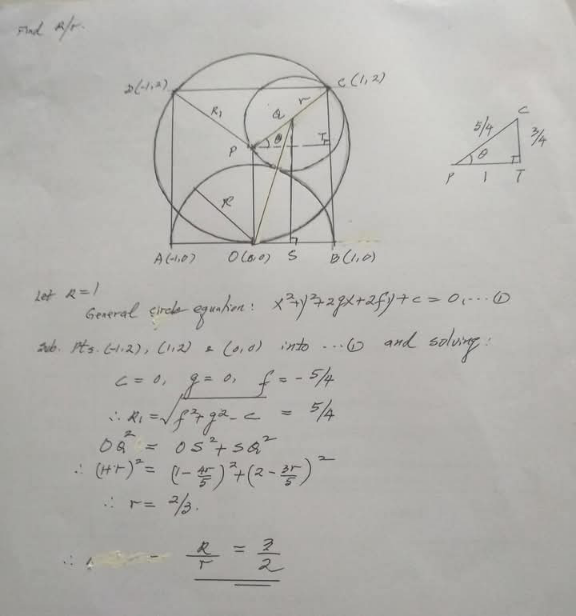 Find R/r.
D(-1,2)
C(1,2)
R₁
Q
r
P
θ
T
R
A(-1,0)
O(0,0)
S
B(1,0)
C
5/4
3/4
θ
P
1
T
Let R=1
General circle equation: x²+y²+2gx+2fy+c=0,...①
Sub. Pts. (-1,2), (1,2) & (0,0) into ...① and solving:
c = 0, g = 0, f = -5/4
∴ R₁ = √f²+g²-c = 5/4
OQ² = OS²+SQ²
∴ (1+r)² = (1-4r/5)²+(2-3r/5)²
∴ r = 2/3.
∴ R/r = 3/2